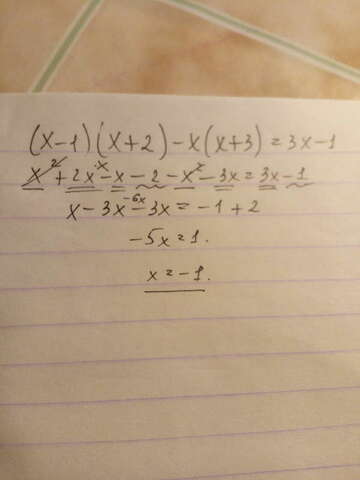 (x-1)(x+2)-x(x+3)=3x-1
x²+2x-x-2-x²-3x=3x-1
x
x-3x-3x=-1+2
-6x
-5x=1.
x=-1.